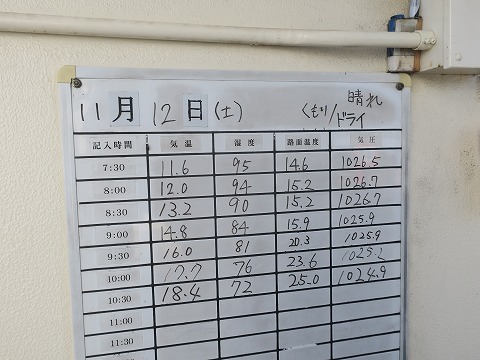 11月 12日(土) くもり/晴れ
ドライ
記入時間 気温 湿度 路面温度 気圧
7:30 11.6 95 14.6 1026.5
8:00 12.0 94 15.2 1026.7
8:30 13.2 90 15.2 1026.7
9:00 14.8 84 15.9 1025.9
9:30 16.0 81 20.3 1025.9
10:00 17.7 76 23.6 1025.2
10:30 18.4 72 25.0 1024.9
11:00
11:30